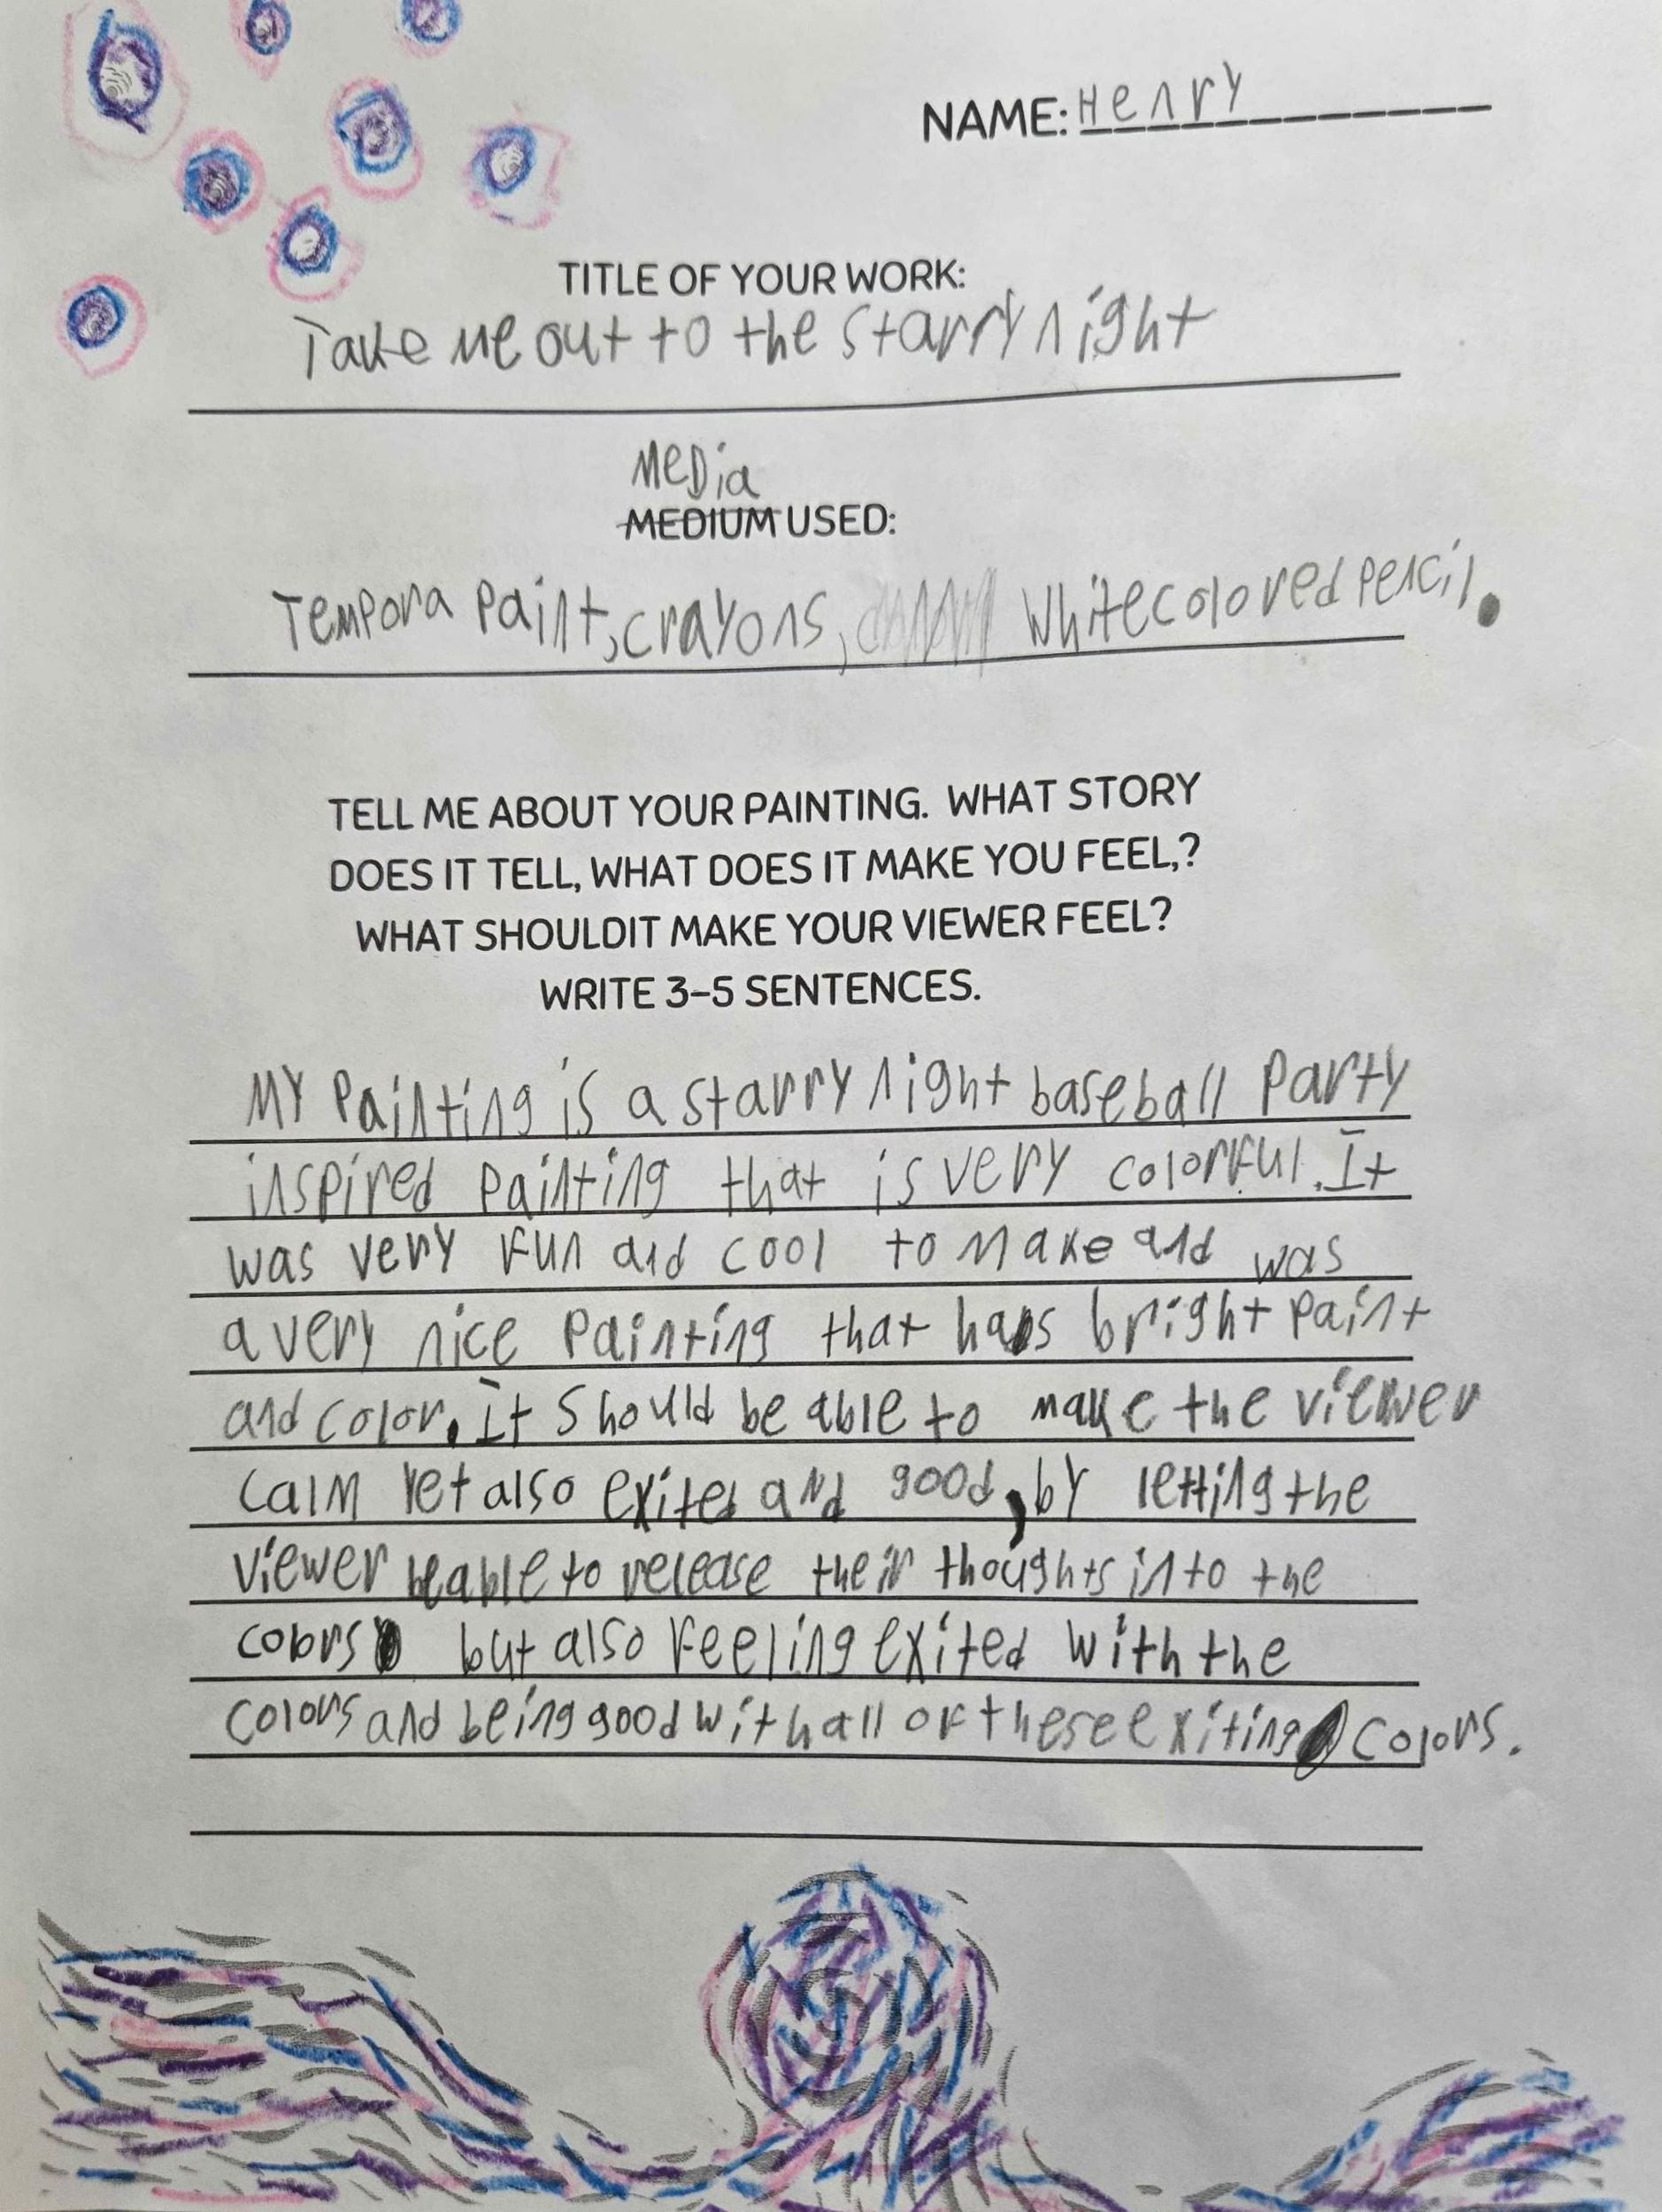 NAME: Henry
TITLE OF YOUR WORK:
Take me out to the starry night
Media
MEDIUM USED:
Tempora Paint, crayons, white colored pencil.
TELL ME ABOUT YOUR PAINTING. WHAT STORY
DOES IT TELL, WHAT DOES IT MAKE YOU FEEL,?
WHAT SHOULDIT MAKE YOUR VIEWER FEEL?
WRITE 3-5 SENTENCES.
MY Painting is a starry night baseball Party
inspired painting that is very colorful. It
was very fun and cool to make and was
a very nice Painting that has bright paint
and color. It should be able to make the viewer
calm yet also exited and good, by letting the
viewer be able to release their thoughts into the
colors but also feeling exited with the
colors and being good with all of these exiting colors.